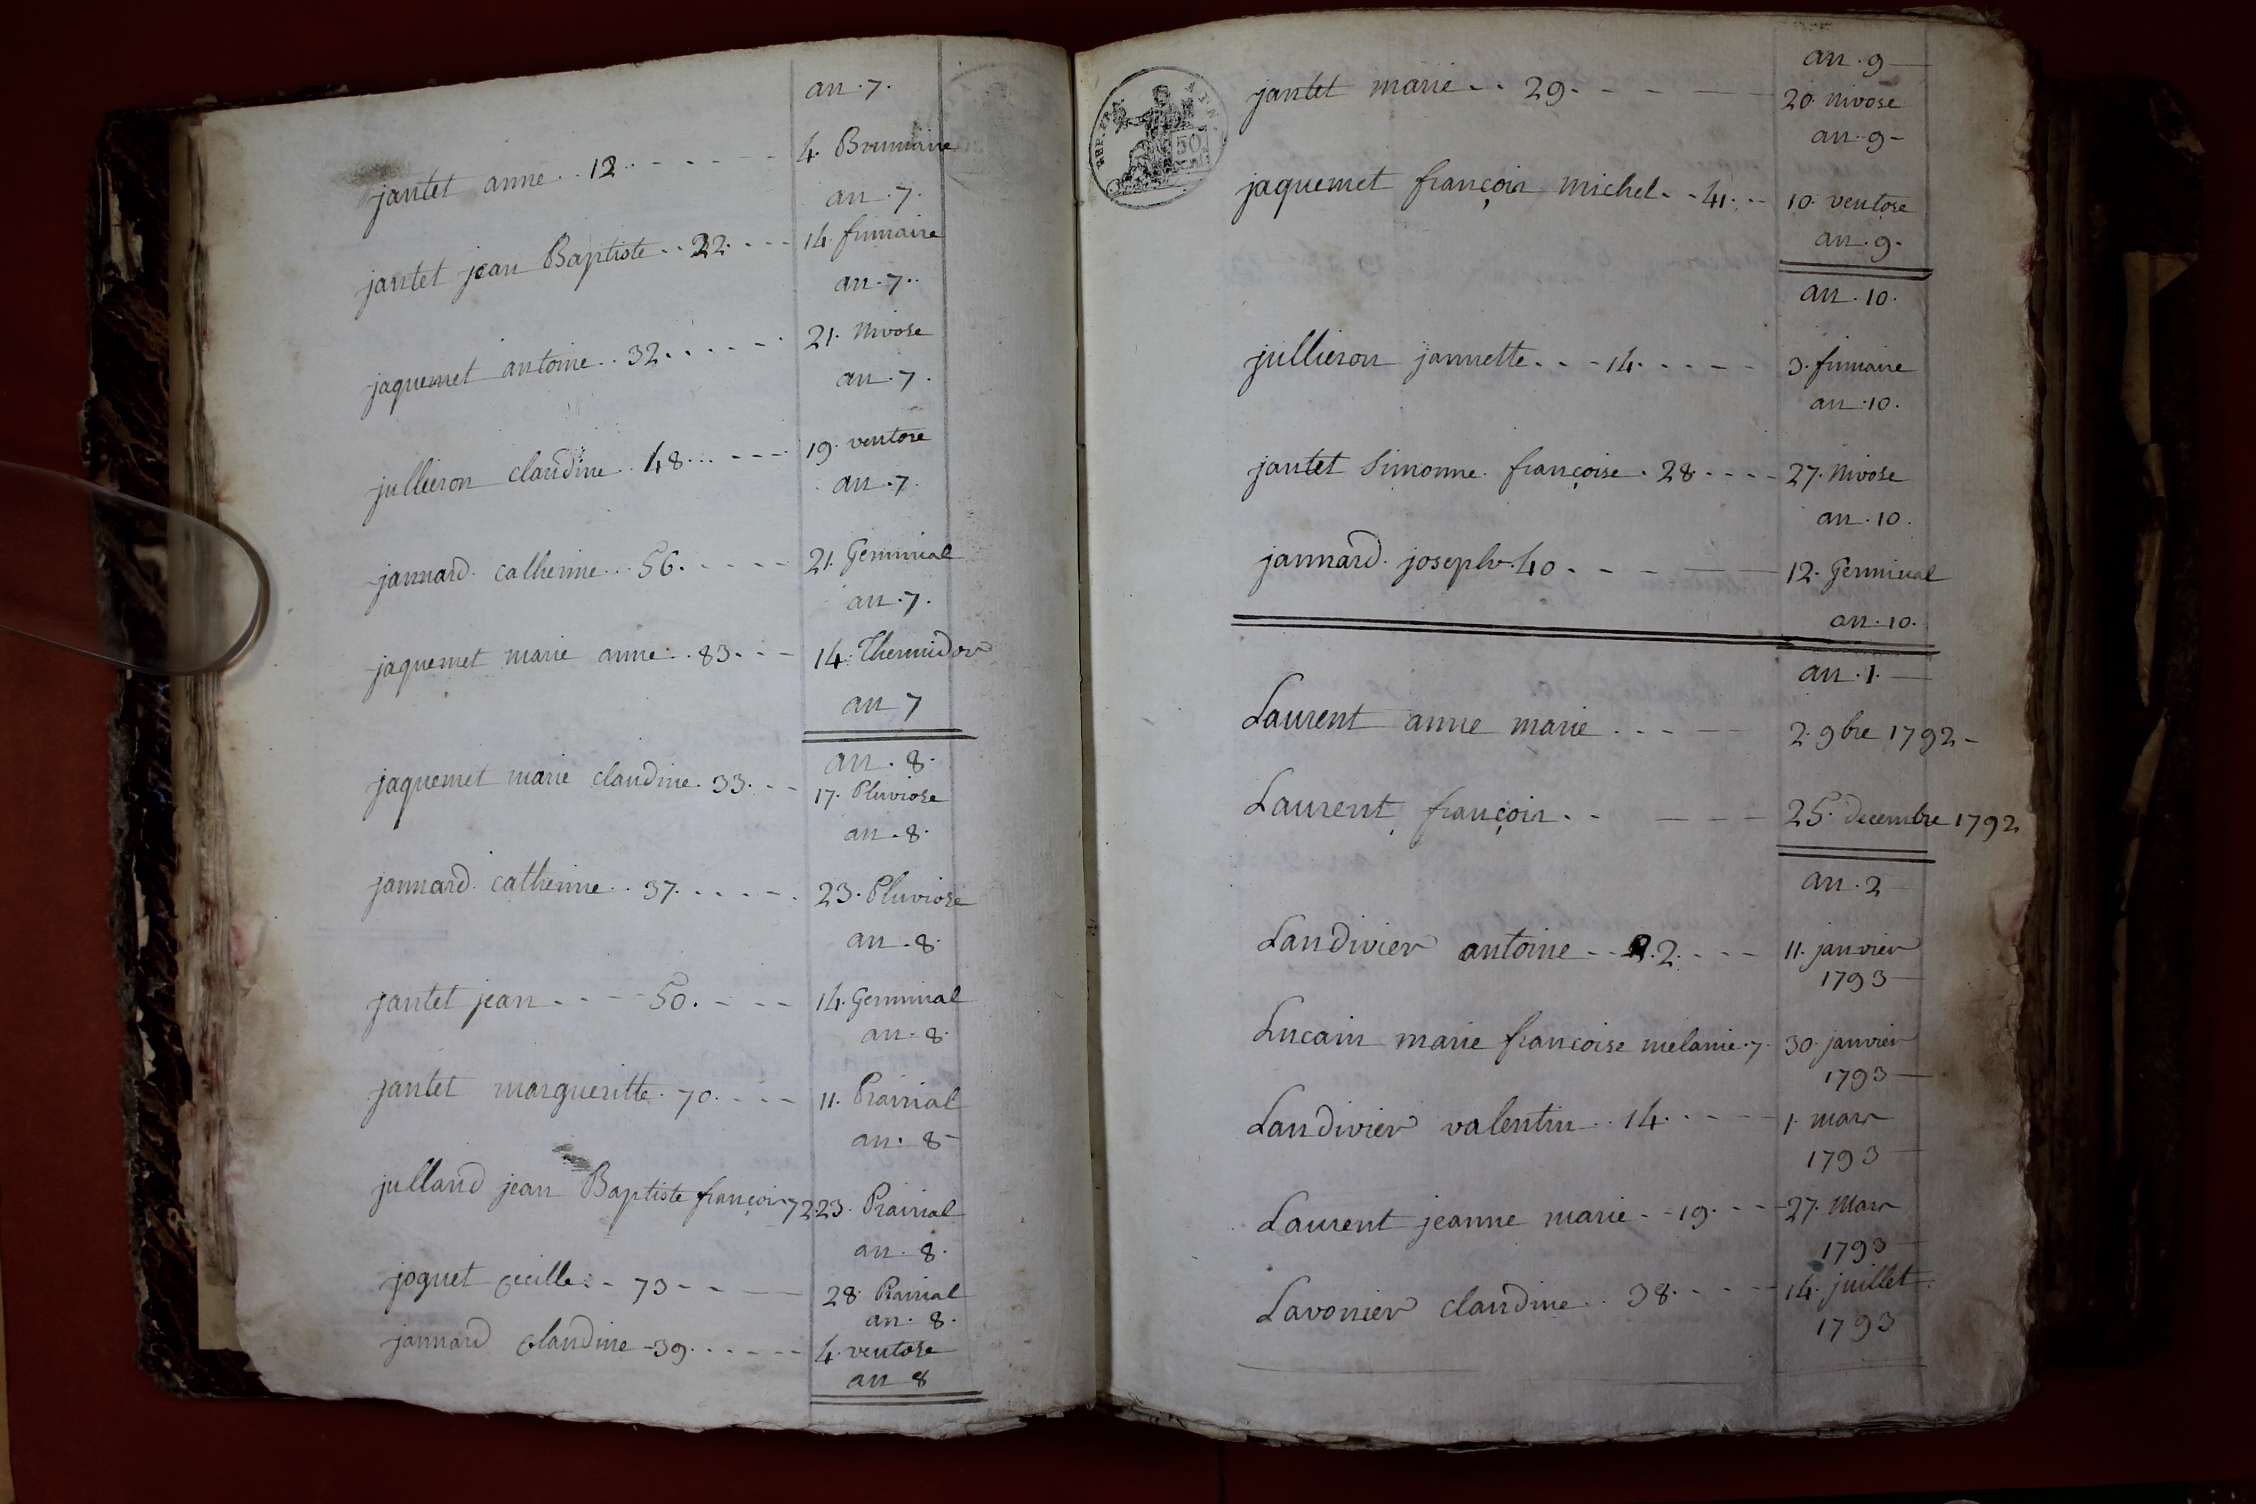 an . 7 .
jantet anne . . 12 . . - - - - - 4. Brumaire
an . 7 .
jantet jean Baptiste . . 22 . - - - 14. frimaire
an . 7 . .
jaquemet antoine . . 32 . . . - - - 21. Nivose
an . 7 .
jullieron claudine . . 48 . . . - - - 19. ventose
an . 7 .
jannard . catherine . . . 56 . - - - - 21. Germinal
an . 7 .
jaquemet marie anne . . 83 . - - 14. Thermidor
an 7
an . 8 .
jaquemet marie claudine . 33 . - - 17. Pluviose
an . 8 .
jannard . catherine . . 37 . . - - - . 23. Pluviose
an . 8 .
jantet jean . - - - 50 . - - - 14. Germinal
an . 8 .
jantet margueritte . 70 . - - - 11. Prairial
an . 8 -
julland jean Baptiste françois 72. 23. Prairial
an . 8 .
joguet cecille . - 73 - - — 28. Prairial
an . 8 .
jannard claudine - 39 . - - - - 4. ventose
an 8
REP. FRA
50
an . 9 —
jantet marie . . 29 . - - — 20. Nivose
an . 9 -
jaquemet françois michel . - 41 . - 10. ventose
an . 9 .
an . 10 .
jullieron jannette . - - 14 . - - - - 3. frimaire
an . 10 .
jantet Simonne . françoise . 28 . - - - 27. Nivose
an . 10 .
jannard . joseph . 40 . - - - — 12. Germinal
an . 10 .
an . 1 . —
Laurent anne marie . - - — 2. 9bre 1792 -
Laurent françois . - — - - 25. decembre 1792
an . 2
Landivier antoine - - 2 . - - - 11. janvier
1793 —
Lucain marie françoise melanie . 7 . 30. janvier
1793 —
Landivier valentin . . 14 . - - - - 1. mars
1793 —
Laurent jeanne marie . - 19 . - - - 27. Mars
1793 —
Lavonier claudine . . 38 . - - - - 14. juillet .
1793